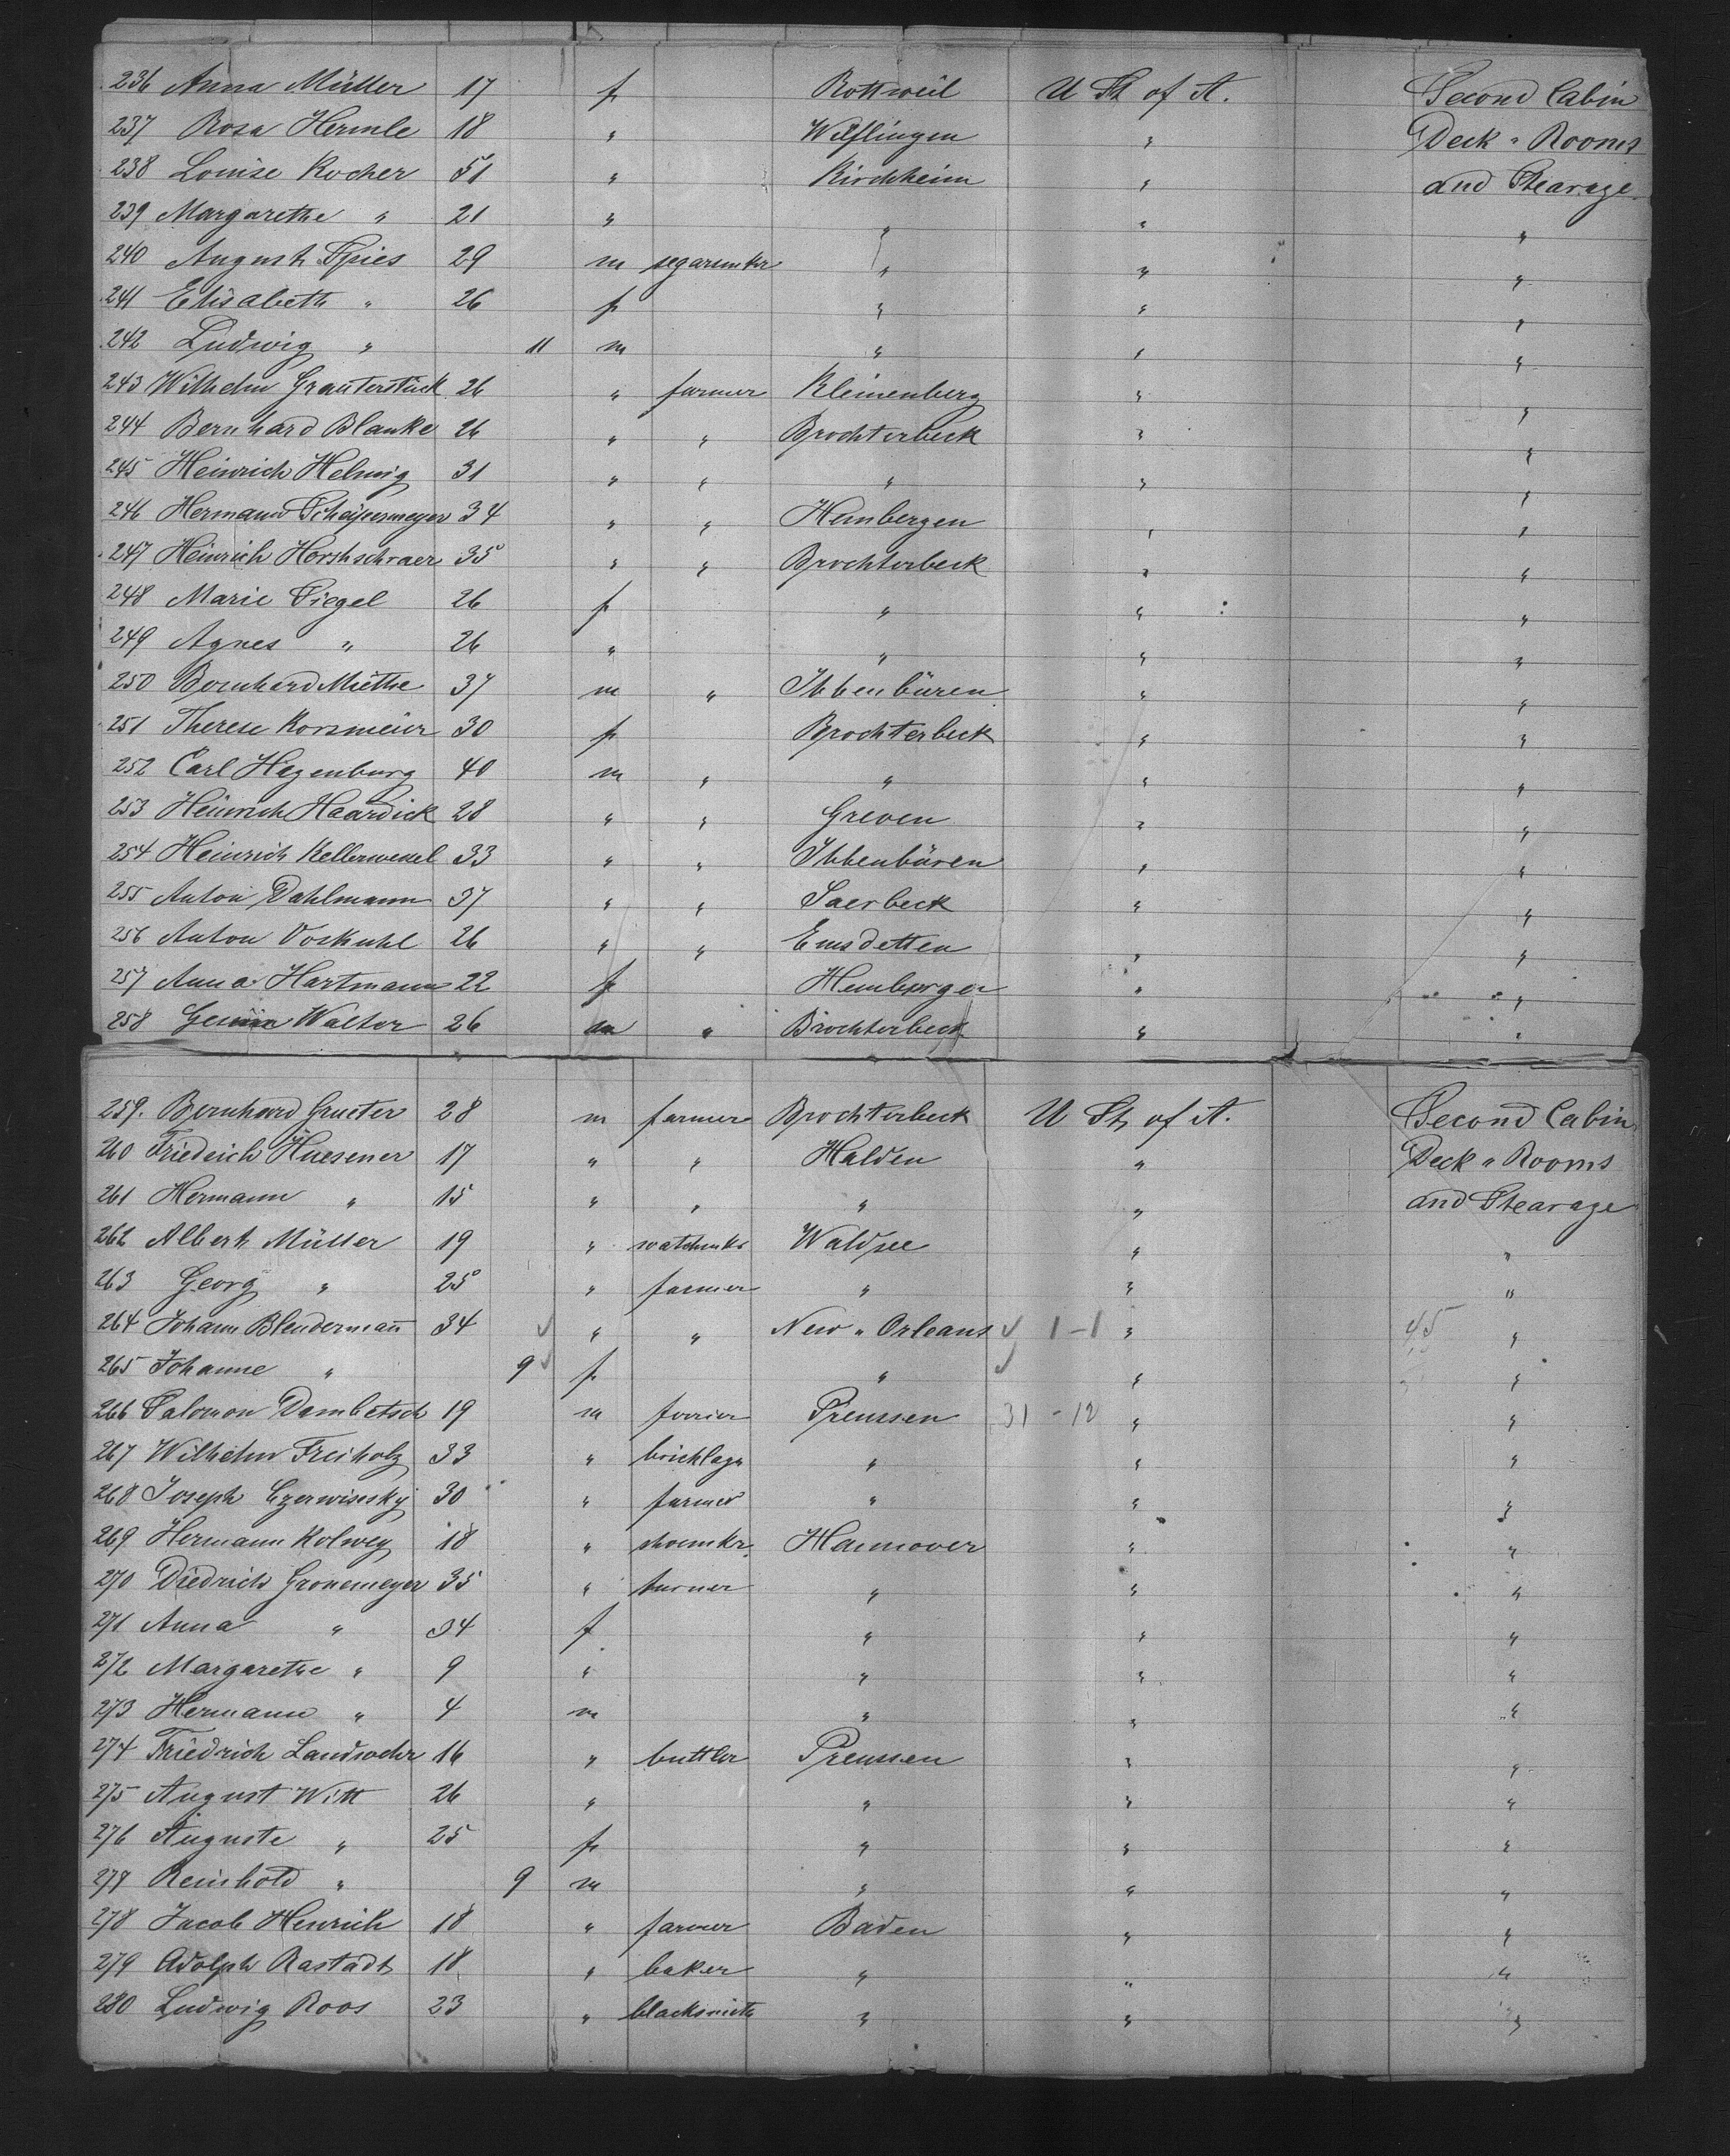 236 Anna Müller 17 f Rottweil U St of A. Second Cabin
237 Rosa Hermle 18 " Wilflingen " Deck " Rooms
238 Louise Kocher 51 " Kirchheim " and Stearage
239 Margarethe " 21 " " " "
240 August Spies 29 m segarmkr " " "
241 Elisabeth " 26 f " " "
242 Ludwig " 11 m " " "
243 Wilhelm Grauterstück 26 " farmer Kleinenberg " "
244 Bernhard Blanke 26 " " Brochterbeck " "
245 Heinrich Helmig 31 " " " " "
246 Hermann 34 " " Hembergen " "
247 Heinrich Horstschraer 35 " " Brochterbeck " "
248 Marie Siegel 26 f " " "
249 Agnes " 26 " " " "
250 Bernhard Miethe 37 m " Ibbenbüren " "
251 Therese Korsmeier 30 f Brochterbeck " "
252 Carl Hagenburg 40 m " " " "
253 Heinrich Haardick 28 " " Greven " "
254 Heinrich Kellerwessel 33 " " Ibbenbüren " "
255 Anton Dahlmann 37 " " Saerbeck " "
256 Anton Voskuhl 26 " " Emsdetten " "
257 Anna Hartmann 22 f Hembergen " "
258 Walter 26 m " Brochterbeck " "
259. Bernhard Grueter 28 m farmer Brochterbeck U St of A. Second Cabin
260 Friedrich Huesener 17 " " Halden " Deck " Rooms
261 Hermann " 15 " " " " and Stearage
262 Albert Müller 19 " watchmkr Waldsee " "
263 Georg " 25 " farmer " " "
264 Johann Blendermañ 34 ✓ " " New " Orleans ✓ 1-1 " 45 "
265 Johanne " 9 ✓ f " ✓ " "
266 Salomon Dambitsch 19 m furrier Preussen 31-12 " "
267 Wilhelm Freiholz 33 " bricklayr " " "
268 Joseph Czerwisesky 30 " farmer " " "
269 Hermann Kolwey 18 " shoemkr. Hannover " "
270 Diedrich Gronemeyer 35 " turner " " "
271 Anna " 34 f " " "
272 Margarethe " 9 " " " "
273 Hermann " 4 m " " "
274 Friedrich Landwehr 16 " buttler Preussen " "
275 August Witt 26 " " " "
276 Auguste " 25 f " " "
277 Reinhold " 9 m " " "
278 Jacob Henrich 18 " farmer Baden " "
279 Adolph Rastädt 18 " baker " " "
280 Ludwig Roos 23 " blacksmith " " "